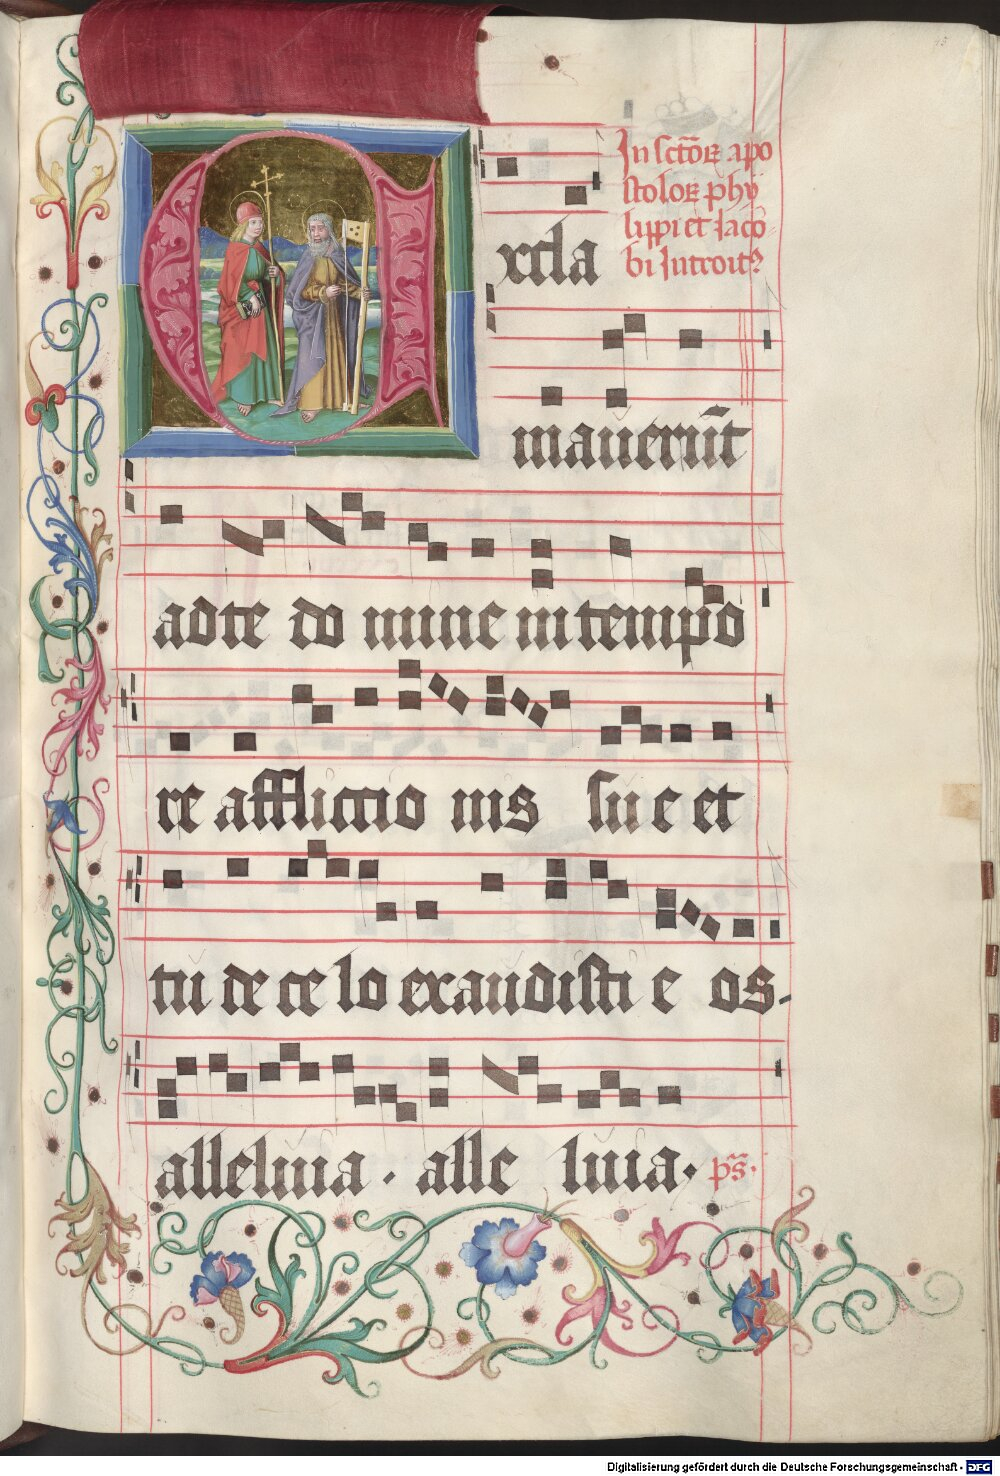 In sctōꝝ apo
stoloꝝ phy
lippi et Jaco
bi Introitꝰ
Excla
mauerūt
ad te do mine in tempo
re afflictio nis su e et
tu de ce lo exaudisti e os.
alleluia . alle luia . ps̄.
Digitalisierung gefördert durch die Deutsche Forschungsgemeinschaft - DFG